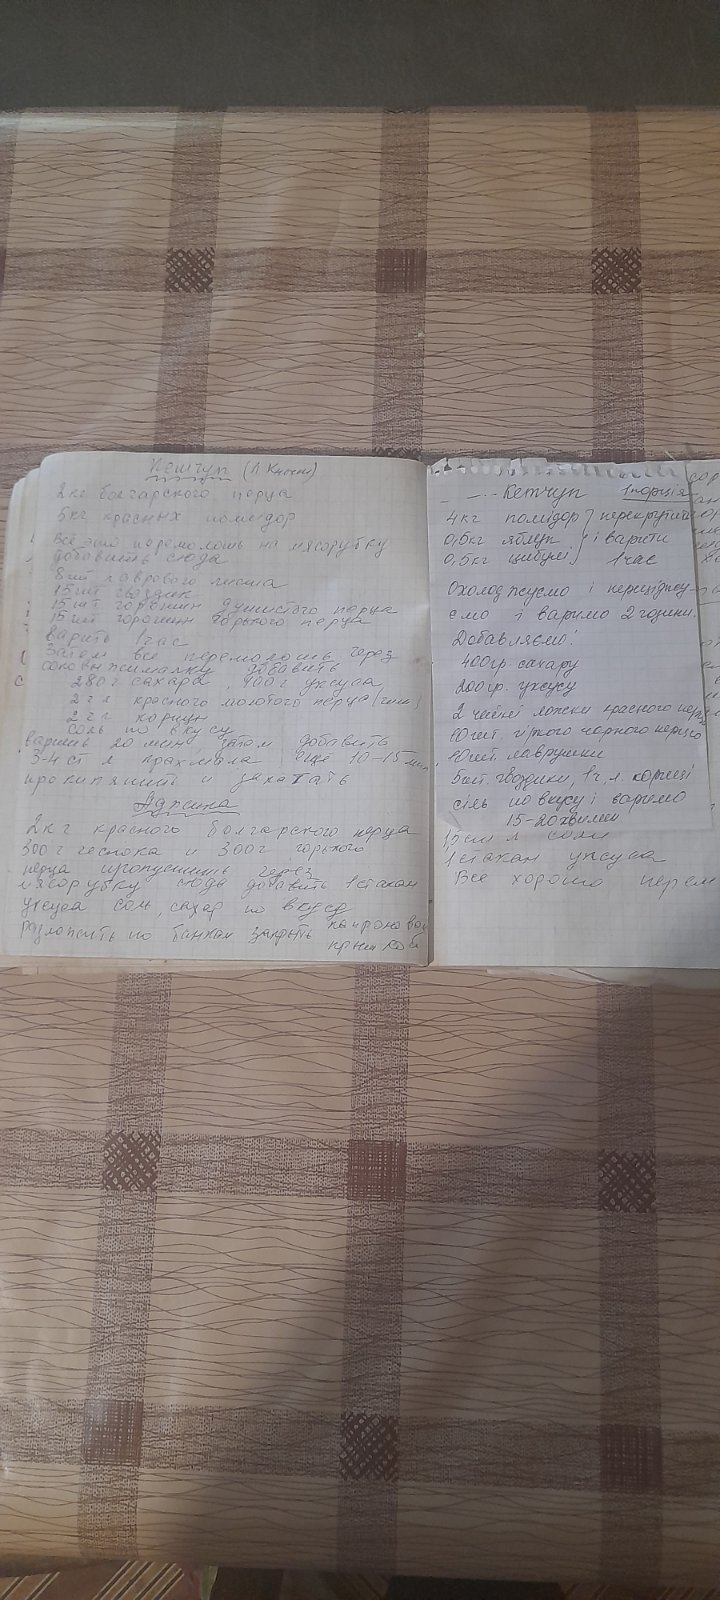 Кетчуп (Л.
2 кг болгарского перца
5 кг красных помидор
Всё это перемолоть на мясорубку
добавить сюда
8 шт лаврового листа
15 шт гвоздик
15 шт горошин душистого перца
15 шт горошин горького перца
варить 1 час
Затем все перемолоть через
соковыжималку добавить
280 г сахара, 400 г уксуса
2 ч л красного молотого перца
2 ч л корицы
соль по вкусу
варить 20 мин, затем добавить
3-4 ст л крахмала, ещё 10-15 мин
прокипятить и закатать
Аджика
2 кг красного болгарского перца
300 г чеснока и 300 г горького
перца пропустить через
мясорубку сюда добавить 1 стакан
уксуса соль, сахар по вкусу
разложить по банкам закрыть капроновой
крышкой
Кетчуп 1 порція
4 кг помідор } перекрутити
0,5 кг яблук } і варити
0,5 кг цибулі } 1 час
Охолоджуємо і перецiджу-
ємо і варимо 2 години.
Добавляємо:
400 гр. сахару
200 гр. уксусу
2 чайні ложки красного перцю
10 шт. гіркого чорного перцю
10 шт. лаврушки
5 шт. гвоздики, 1 ч. л. кориці
сіль по вкусу і варимо
15-20 хвилин
1,5 ст л соли
1 стакан уксуса
Все хорошо перем